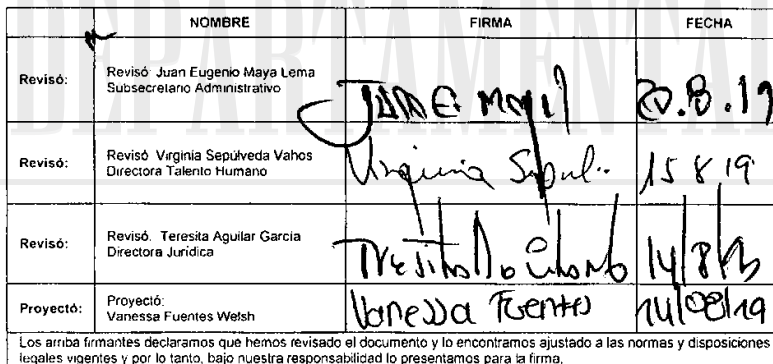 DEPARTAMENTAL
NOMBRE FIRMA FECHA
Revisó: Revisó: Juan Eugenio Maya Lema
Subsecretario Administrativo
JUAN E MAYA 20.8.19
Revisó: Revisó: Virginia Sepúlveda Vahos
Directora Talento Humano
Virginia Sepul.. 15 8 19
Revisó: Revisó. Teresita Aguilar García
Directora Jurídica
14/8/19
Proyectó: Proyectó:
Vanessa Fuentes Welsh
Vanessa Fuentes 14/08/19
Los arriba firmantes declaramos que hemos revisado el documento y lo encontramos ajustado a las normas y disposiciones
legales vigentes y por lo tanto, bajo nuestra responsabilidad lo presentamos para la firma,